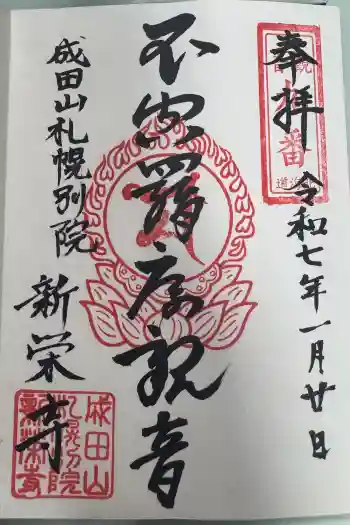 奉拝
令和七年一月廿日
不空羂索観音
成田山札幌別院
新栄寺
成田山
札幌別院
新栄寺